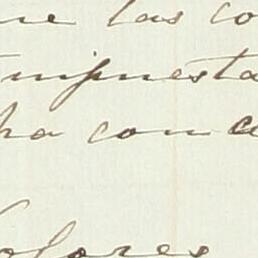 ue las co
mpuesta
ha conce
olores